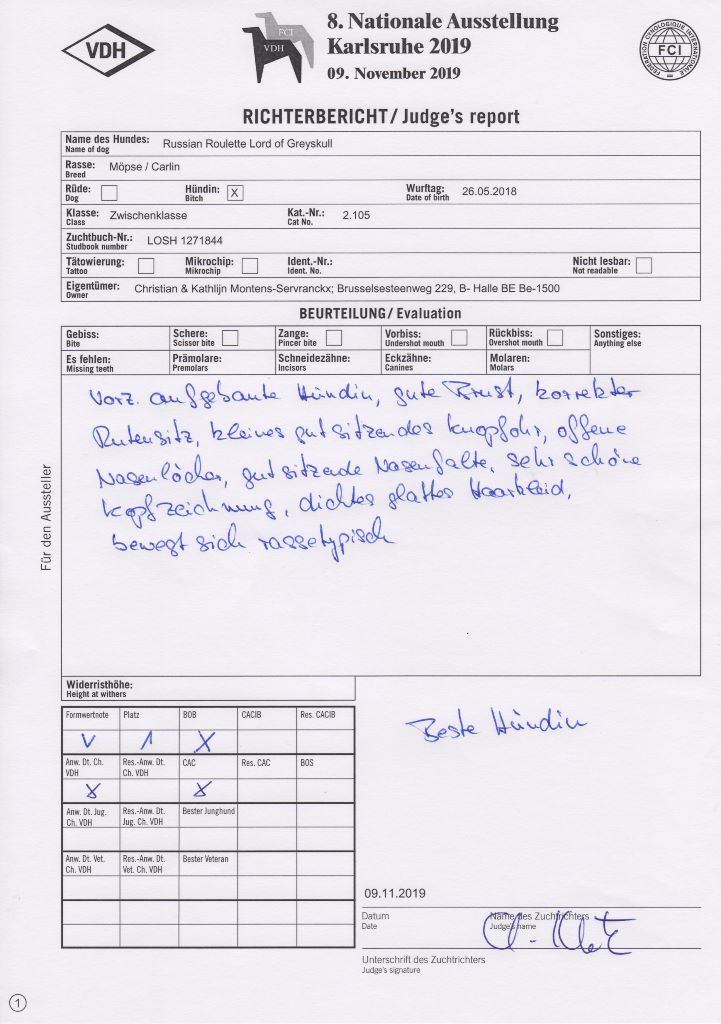 VDH
FCI
VDH
8. Nationale Ausstellung
Karlsruhe 2019
09. November 2019
FEDERATION CYNOLOGIQUE INTERNATIONALE
FCI
RICHTERBERICHT / Judge's report
Name des Hundes: Russian Roulette Lord of Greyskull
Name of dog
Rasse: Möpse / Carlin
Breed
Rüde: Hündin: X Wurftag: 26.05.2018
Dog Bitch Date of birth
Klasse: Zwischenklasse Kat.-Nr.: 2.105
Class Cat No.
Zuchtbuch-Nr.: LOSH 1271844
Studbook number
Tätowierung: Mikrochip: Ident.-Nr.: Nicht lesbar:
Tattoo Mikrochip Ident. No. Not readable
Eigentümer: Christian & Kathlijn Montens-Servranckx; Brusselsesteenweg 229, B- Halle BE Be-1500
Owner
BEURTEILUNG / Evaluation
Gebiss: Schere: Zange: Vorbiss: Rückbiss: Sonstiges:
Bite Scissor bite Pincer bite Undershot mouth Overshot mouth Anything else
Es fehlen: Prämolare: Schneidezähne: Eckzähne: Molaren:
Missing teeth Premolars Incisors Canines Molars
Vorz. aufgebaute Hündin, gute Brust, korrekter
Rutensitz, kleines gut sitzendes Knopfohr, offene
Nasenlöcher, gut sitzende Nasenfalte, sehr schöne
Kopfzeichnung, dichtes glattes Haarkleid,
bewegt sich rassetypisch
Für den Aussteller
Widerristhöhe:
Height at withers
Formwertnote Platz BOB CACIB Res. CACIB
V 1 X
Anw. Dt. Ch. VDH Res.-Anw. Dt. Ch. VDH CAC Res. CAC BOS
X X
Anw. Dt. Jug. Ch. VDH Res.-Anw. Dt. Jug. Ch. VDH Bester Junghund
Anw. Dt. Vet. Ch. VDH Res.-Anw. Dt. Vet. Ch. VDH Bester Veteran
Beste Hündin
09.11.2019
Datum Name des Zuchtrichters
Date Judge's name
Unterschrift des Zuchtrichters
Judge's signature
1